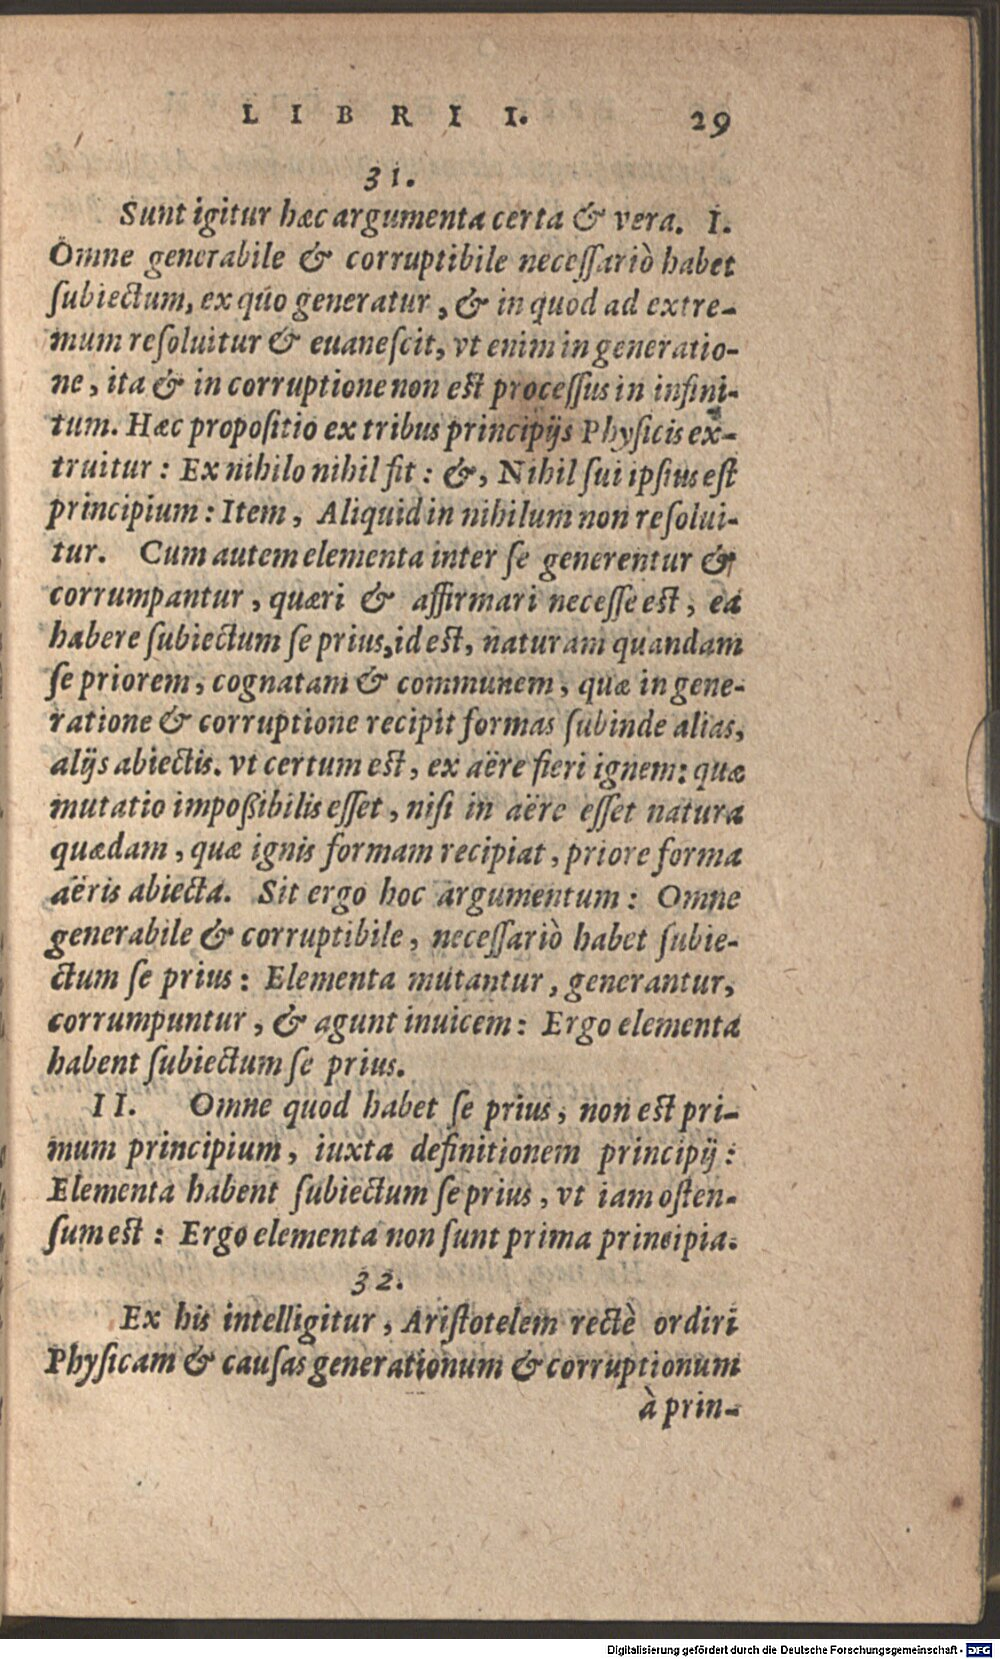 LIBRI I. 29
31.
Sunt igitur hæc argumenta certa & vera. I.
Omne generabile & corruptibile necessariò habet
subiectum, ex quo generatur, & in quod ad extre-
mum resoluitur & euanescit, vt enim in generatio-
ne, ita & in corruptione non est processus in infini-
tum. Hæc propositio ex tribus principijs Physicis ex-
truitur: Ex nihilo nihil fit: &, Nihil sui ipsius est
principium: Item, Aliquid in nihilum non resolui-
tur. Cum autem elementa inter se generentur &
corrumpantur, quæri & affirmari necesse est, ea
habere subiectum se prius, id est, naturam quandam
se priorem, cognatam & communem, quæ in gene-
ratione & corruptione recipit formas subinde alias,
alijs abiectis. vt certum est, ex aëre fieri ignem: quæ
mutatio impoßibilis esset, nisi in aëre esset natura
quædam, quæ ignis formam recipiat, priore forma
aëris abiecta. Sit ergo hoc argumentum: Omne
generabile & corruptibile, necessariò habet subie-
ctum se prius: Elementa mutantur, generantur,
corrumpuntur, & agunt inuicem: Ergo elementa
habent subiectum se prius.
II. Omne quod habet se prius, non est pri-
mum principium, iuxta definitionem principij:
Elementa habent subiectum se prius, vt iam osten-
sum est: Ergo elementa non sunt prima principia.
32.
Ex his intelligitur, Aristotelem rectè ordiri
Physicam & causas generationum & corruptionum
à prin-
Digitalisierung gefördert durch die Deutsche Forschungsgemeinschaft - DFG